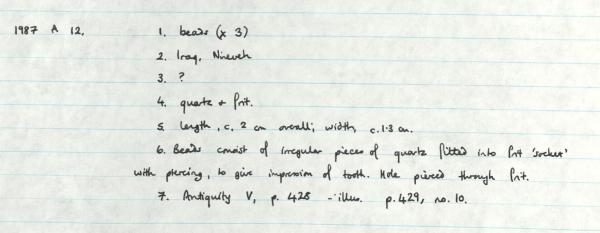 1987 A 12. 1. beads (x 3)
2. Iraq, Nineveh
3. ?
4. quartz & frit.
5. length, c. 2 cm overall; width, c. 1.3 cm.
6. Beads consist of irregular pieces of quartz fitted into frit 'socket'
with piercing, to give impression of tooth. Hole pierced through frit.
7. Antiquity V, p. 428 - illus. p. 429, no. 10.